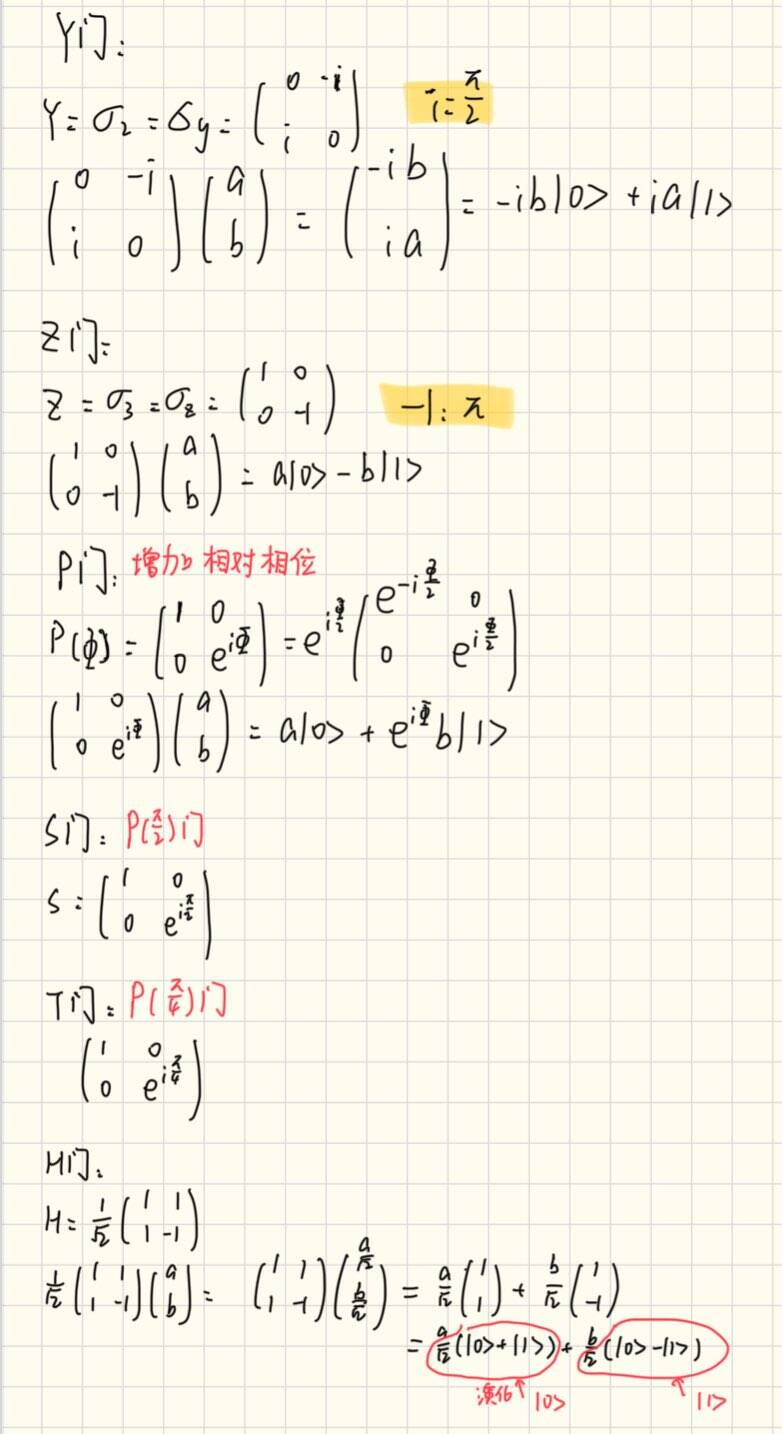 Y门:
Y = σ₂ = σy = (0 -i; i 0) i = π/2
(0 -i; i 0)(a; b) = (-ib; ia) = -ib|0> + ia|1>
Z门:
Z = σ₃ = σz = (1 0; 0 -1) -1: π
(1 0; 0 -1)(a; b) = a|0> - b|1>
P门: 增加 相对相位
P(Φ) = (1 0; 0 e^{iΦ}) = e^{iΦ/2}(e^{-iΦ/2} 0; 0 e^{iΦ/2})
(1 0; 0 e^{iΦ})(a; b) = a|0> + e^{iΦ}b|1>
S门: P(π/2)门
S = (1 0; 0 e^{iπ/2})
T门: P(π/4)门
(1 0; 0 e^{iπ/4})
H门:
H = 1/√2 (1 1; 1 -1)
1/√2 (1 1; 1 -1)(a; b) = (1 1; 1 -1)(a/√2; b/√2) = a/√2 (1; 1) + b/√2 (1; -1)
= a/√2 (|0>+|1>) + b/√2 (|0>-|1>)
演化↑|0> ↑|1>